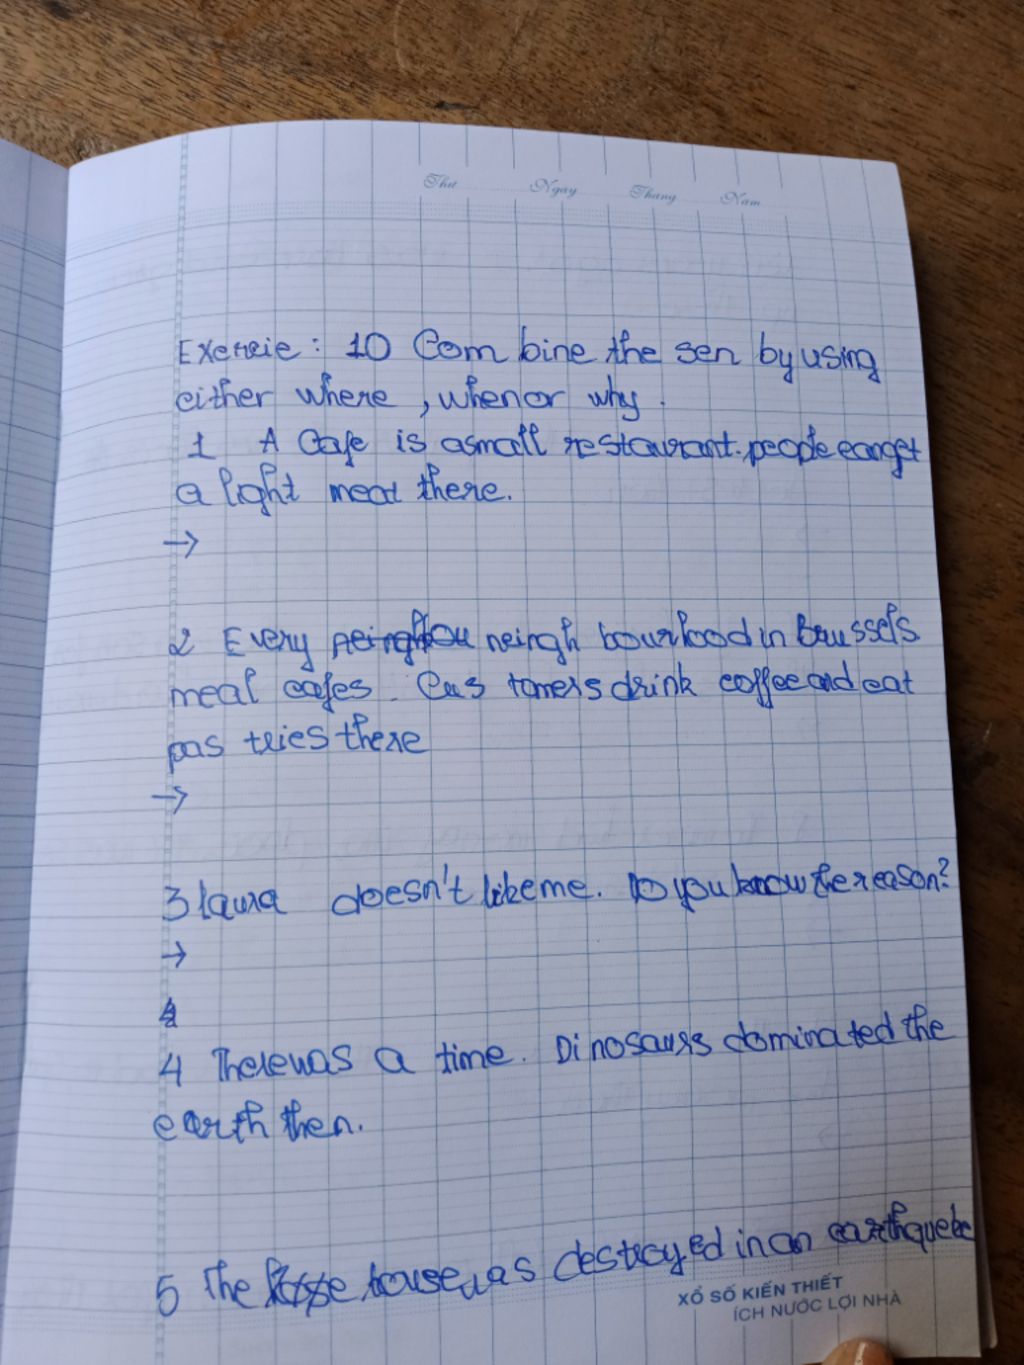 Thứ Ngày Tháng Năm
Exercie : 10 Com bine the sen by using
either where , when or why .
1 A Cafe is a small restaurant. people canget
a light meat there.
→
2 Every neingh bourhood in Brussels
meal cafes . Cus tomers drink coffee and eat
pas tries there
→
3 laura doesn't like me. Do you know the reason?
→
4 There was a time . Di nosaurs domina ted the
earth then.
5 The house was destroyed in an earthquake
XỔ SỐ KIẾN THIẾT
ÍCH NƯỚC LỢI NHÀ